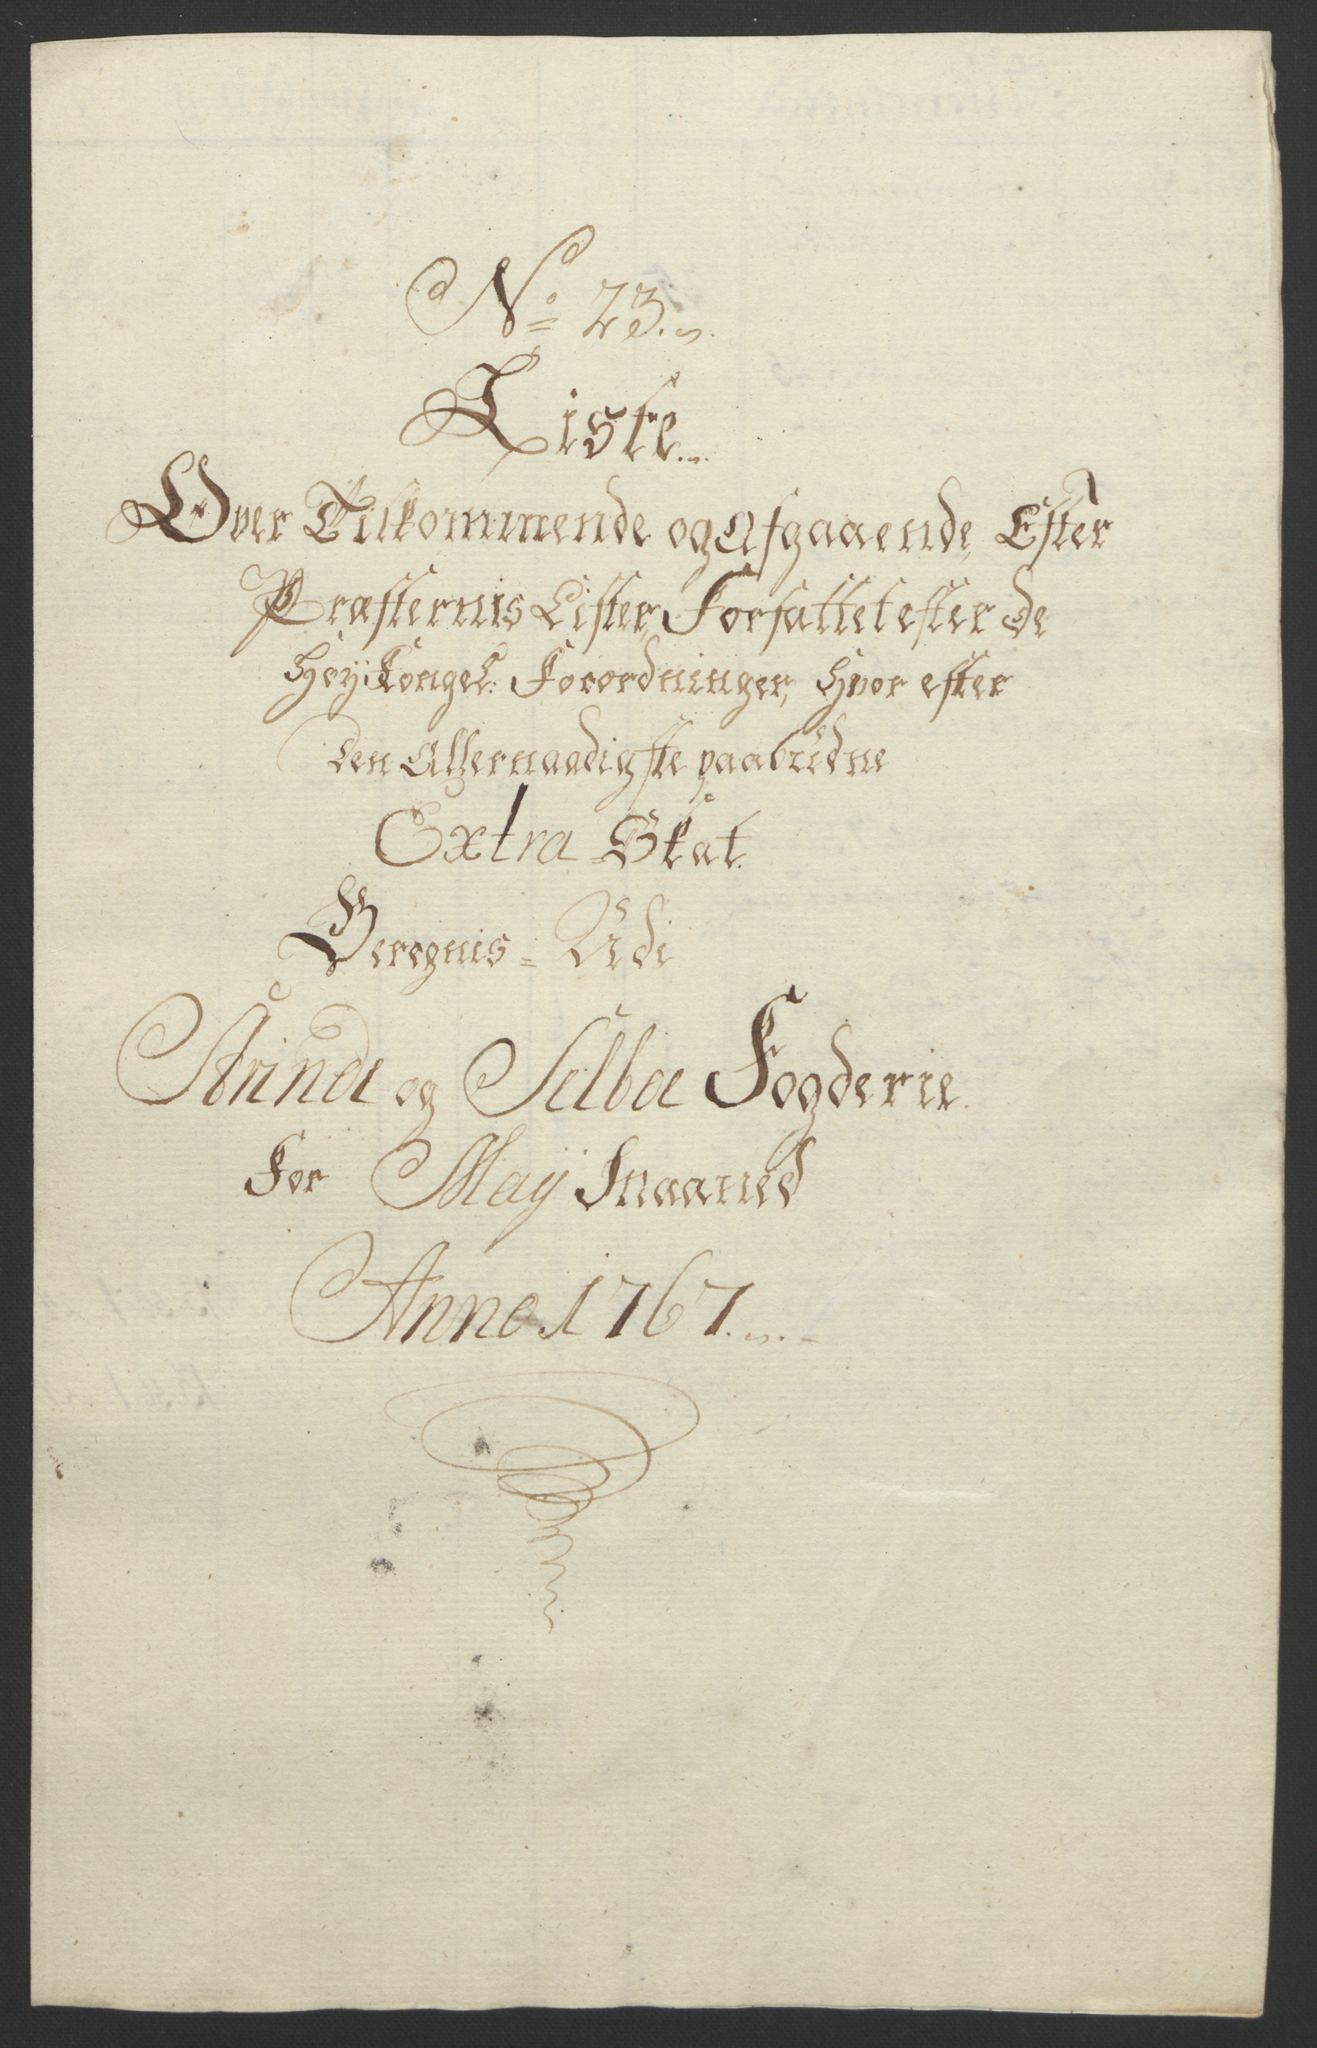 No 23.
Liste
Over Tilkommende og Afgaaende, Efter
Præsternis Lister, Forfattet efter de
Høy: Kongel: Forordninger, Hvor efter
den Allernaadigste paabudne
Extra Skat
Beregnis - Udi
Strinde og Selboe Fogderie
For Maÿ Maaned
Anno 1767.